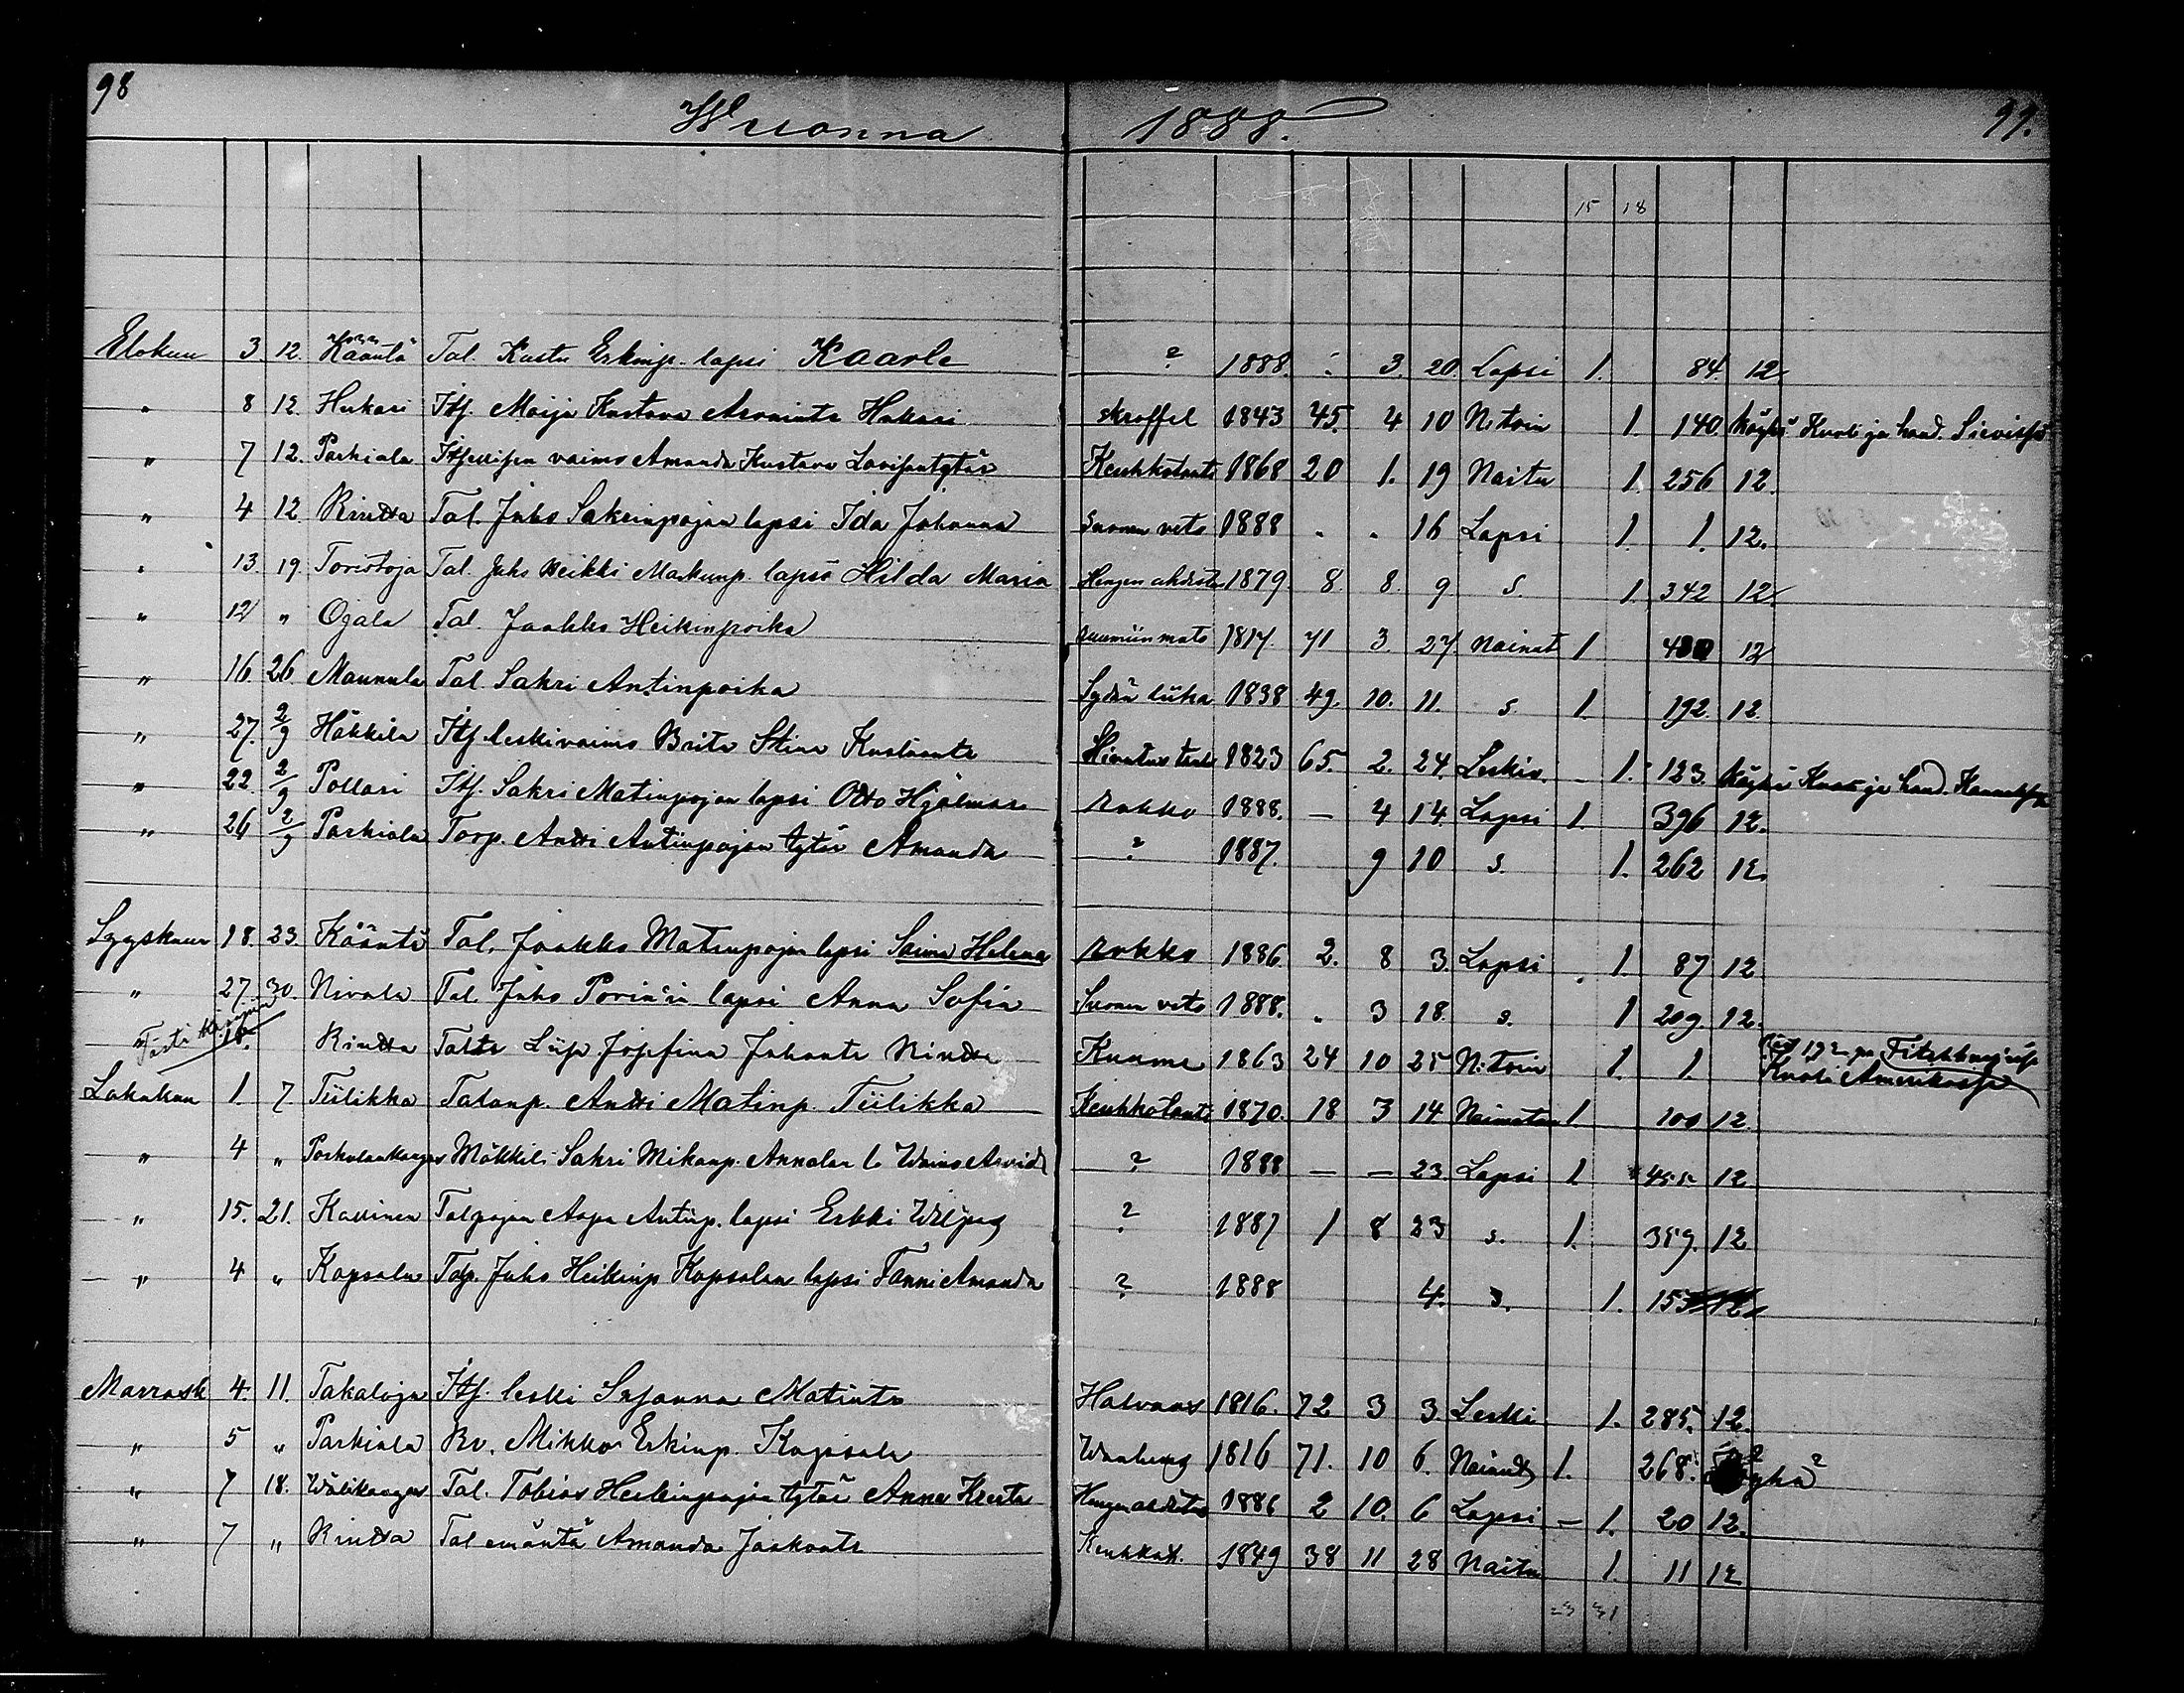 98
Wuonna 1888.
99.
15 18
Elokuu 3 12. Kääntä Tal. Kustu Erkinp. lapsi Kaarle ? 1888. 3. 20. Lapsi 1. 84. 12.
" 8 12. Hukari Itj. Maija Kustava Hukari 1843 45. 4 10 N:toin 1. 140. Köyhä Kuoli ja haud. Sievissä
" 7 12. Parhiala vaimo Amanda Kustava Keuhkotauti 1868 20 1. 19 Naitu 1. 256 12.
" 4 12. Rintta Tal. Juho Sakrinpojan lapsi Ida Johanna Suonen veto 1888 " " 16 Lapsi 1. 1. 12.
" 13. 19. Toristoja Tal. Juho Heikki Markunp. lapsi Hilda Maria Hengen ahdistus 1879. 8. 8. 9 s. 1. 342 12.
" 12 " Ojala Tal. Jaakko Heikinpoika 1817. 71 3. 27 Nainut 1 12
" 16. 26. Maunula Tal. Sakri Antinpoika Sydän 1838 49. 10. 11. s. 1. 192 12
" 27. 2/9 Häkkilä Itj. leskivaimo Brita Stina 1823 65. 2. 24. Leskiv. – 1. 123. Köyhä Kuoli ja haud.
" 22. 2/9 Pollari Itj. Sakri Matinpojan lapsi Otto Hjalmar Rokko 1888. — 4 14. Lapsi 1. 396 12.
" 26 2/9 Parhiala Torp. Antti Antinpojan tytär Amanda ? 1887. 9 10 s. 1. 262 12.
Syyskuu 18. 23. Kääntä Tal. Jaakko Matinpojan lapsi Saima Helena Rokko 1886. 2. 8 3. Lapsi 1. 87 12
" 27. 30. Nivala Tal. Juho lapsi Anna Sofia Suonen veto 1888. " 3 18. s. 1 209. 12.
Rintta Liisa Josefina Juhontr Rintta Kuume 1863 24 10 25 N:toin 1. 1.
Kuoli Amerikassa
Lokakuu 1. 7 Tiilikka Talonp. Antti Matinp. Tiilikka Keuhkotauti 1870. 18 3 14. Naimaton 1. 100 12.
" 4 " Mökkil. Sakri Mikonp. Annalan l. Waino Arvid ? 1888 — — 23. Lapsi 1. 455 12
" 15. 21. Kallinen Talpojan Aapo Antinp. lapsi Erkki Wiljag ? 1887 1 8 23 s. 1. 359. 12
" 4 " Kopsala Juho Heikinp Kopsalan lapsi Fanni Amanda ? 1888 4. s. 1. 12.
Marrask 4. 11. Takaloja Itj. leski Susanna Matintr Halvaus 1816. 72 3 3. Leski 1. 285. 12.
" 5 " Parhiala Mikko Erkinp. Kopsala Wanhuus 1816 71. 10 6. Nainut 1. 268.
" 7 18. Wälikangas Tal. Tobias Heikinpojan tytär Anna Kreeta Hengenahdistus 1886 2 10. 6 Lapsi – 1. 20 12.
" 7 " Rintta Tal emäntä Amanda Jaakontr Keuhkot. 1849 38 11 28 Naitu 1. 11 12
23 31